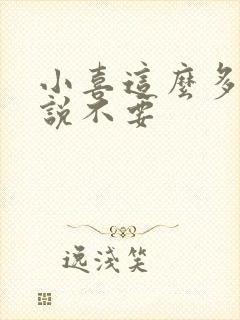 小喜這麼多
說不要
逸淺笑